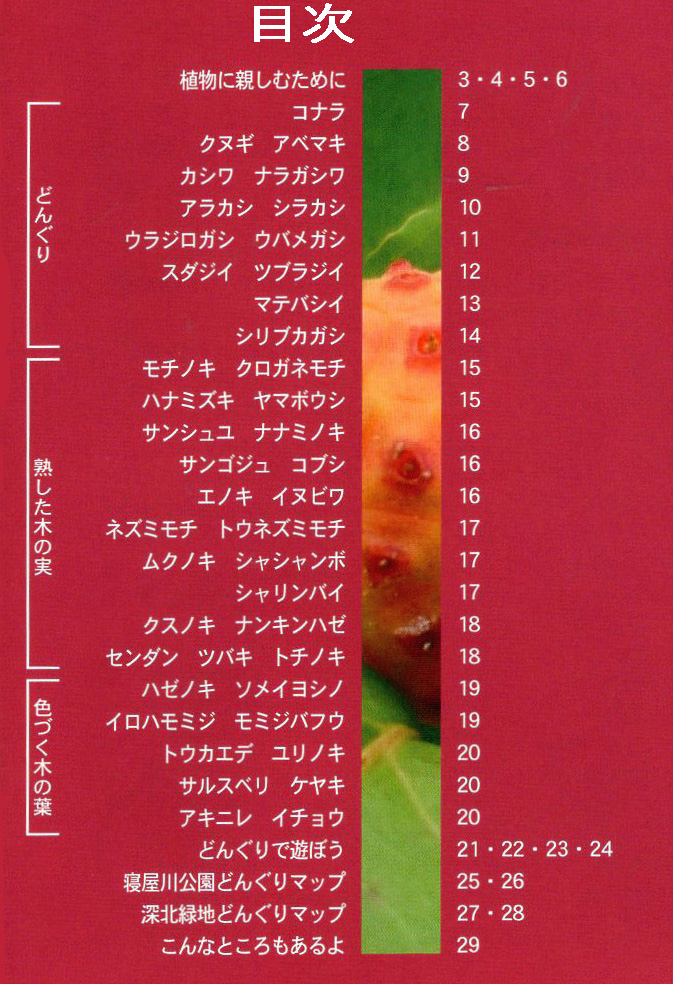 目次
植物に親しむために 3・4・5・6
どんぐり
コナラ 7
クヌギ アベマキ 8
カシワ ナラガシワ 9
アラカシ シラカシ 10
ウラジロガシ ウバメガシ 11
スダジイ ツブラジイ 12
マテバシイ 13
シリブカガシ 14
熟した木の実
モチノキ クロガネモチ 15
ハナミズキ ヤマボウシ 15
サンシュユ ナナミノキ 16
サンゴジュ コブシ 16
エノキ イヌビワ 16
ネズミモチ トウネズミモチ 17
ムクノキ シャシャンボ 17
シャリンバイ 17
クスノキ ナンキンハゼ 18
センダン ツバキ トチノキ 18
色づく木の葉
ハゼノキ ソメイヨシノ 19
イロハモミジ モミジバフウ 19
トウカエデ ユリノキ 20
サルスベリ ケヤキ 20
アキニレ イチョウ 20
どんぐりで遊ぼう 21・22・23・24
寝屋川公園どんぐりマップ 25・26
深北緑地どんぐりマップ 27・28
こんなところもあるよ 29